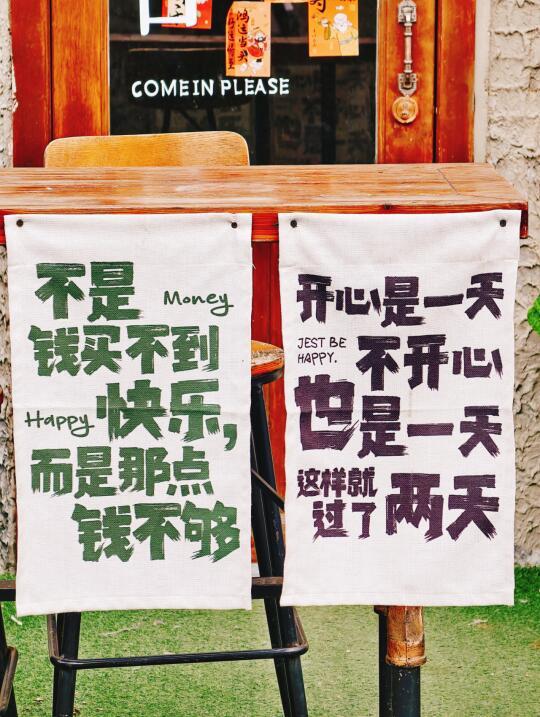 鸿运当头
COME IN PLEASE
不是 Money
钱买不到
Happy 快乐,
而是那点
钱不够
开心是一天
JEST BE
HAPPY.
不开心
也是一天
这样就
过了 两天